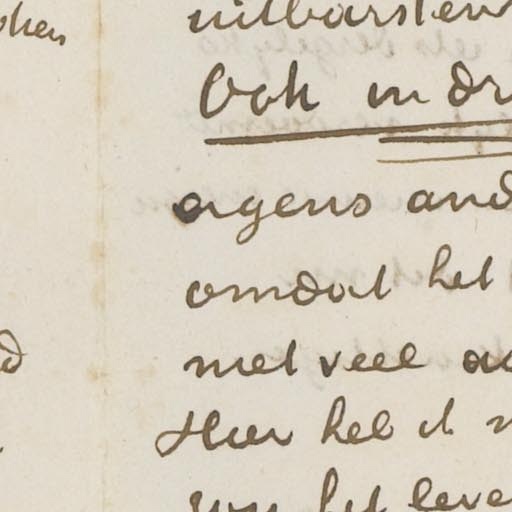 uitbarsten
Ook in dr
ergens and
omdat het
met veel
Hier heb ik
het leve